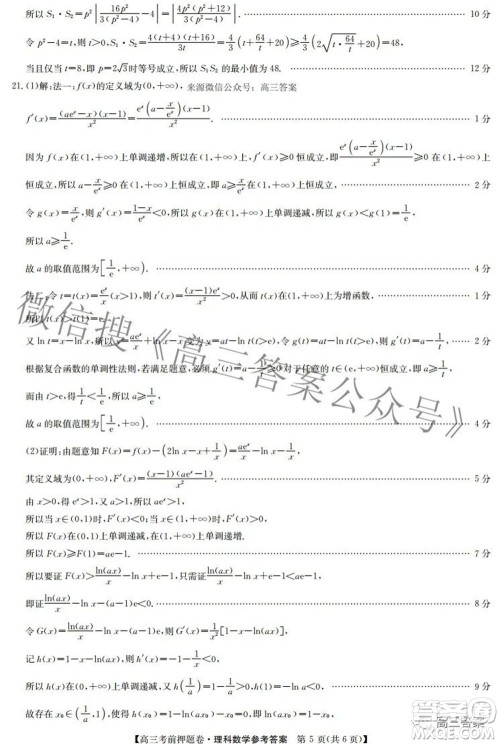 所以 S₁·S₂=p²|16p²/3(p²-4)-4|=|4p²(p²+12)/3(p²-4)|. 10分
令 p²-4=t,则 t>0,S₁·S₂=4(t+4)(t+16)/3t=4/3(t+64/t+20)≥4/3(2√(t·64/t)+20)=48,
当且仅当 t=8,即 p=2√3时等号成立,所以 S₁S₂ 的最小值为 48. 12分
21.(1)解:法一:f(x)的定义域为(0,+∞), 来源微信公众号:高三答案
f′(x)=(aeˣ-x)(x-1)/x²=eˣ(a-x/eˣ)(x-1)/x².
因为 f(x)在(1,+∞)上单调递增,所以 f′(x)≥0 在(1,+∞)上恒成立,即 eˣ(a-x/eˣ)≥0 在(1,+∞)上
恒成立,所以 a-x/eˣ≥0 在(1,+∞)上恒成立,即 a≥x/eˣ在(1,+∞)上恒成立. 2分
令 g(x)=x/eˣ,则 g′(x)=(1-x)/eˣ<0,所以 g(x)在(1,+∞)上单调递减,所以 g(x)<g(1)=1/e.
所以 a≥1/e.
故 a 的取值范围为[1/e,+∞). 4分
法二:令 t=t(x)=eˣ/x(x>1),则 t′(x)=(x-1)eˣ/x²>0,从而 t(x)在(1,+∞)上为增函数, 1分
所以 t(x)>t(1)=e.
又 ln t=x-ln x,所以 y=aeˣ/x+ln x-x变为 y=at-ln t(t>e),令 g(t)=at-ln t(t>e),则 g′(t)=a-1/t, 2分
根据复合函数的单调性法则,若满足题意,必须 g′(t)=a-1/t≥0 对于任意的 t∈(e,+∞)恒成立,即 a≥1/t,
而由 t>e,得 1/t<1/e,所以 a≥1/e.
故 a 的取值范围为[1/e,+∞). 4分
(2)证明:由题意知 F(x)=f(x)-(2ln x-x+1/x)=aeˣ/x-ln x-1/x,
其定义域为(0,+∞),F′(x)=(x-1)(aeˣ-1)/x². 5分
由 x>0,得 eˣ>1,又 a>1,所以 aeˣ>1,
所以当 x∈(0,1)时,F′(x)<0;当 x∈(1,+∞)时,F′(x)>0.
所以 F(x)在(0,1)上单调递减,在(1,+∞)上单调递增.
所以 F(x)≥F(1)=ae-1. 7分
所以要证 F(x)>ln(ax)/x-ln x+e-1,只需证 ln(ax)/x-ln x+e-1<ae-1,
即证ln(ax)/x-ln x-(a-1)e<0. 8分
令 G(x)=ln(ax)/x-ln x-(a-1)e,则 G′(x)=1/x²[1-x-ln(ax)],
记 h(x)=1-x-ln(ax),则 h′(x)=-1-1/x<0,
所以 h(x)在(0,+∞)上单调递减,又 h(1/a)=1-1/a>0,h(1)=-ln a<0, 9分
故存在 x₀∈(1/a,1),使 h(x₀)=0,即 h(x₀)=1-x₀-ln(ax₀)=0,
【高三考前押题卷·理科数学参考答案 第5页(共6页)】
微信搜《高三答案公众号》
高三答案